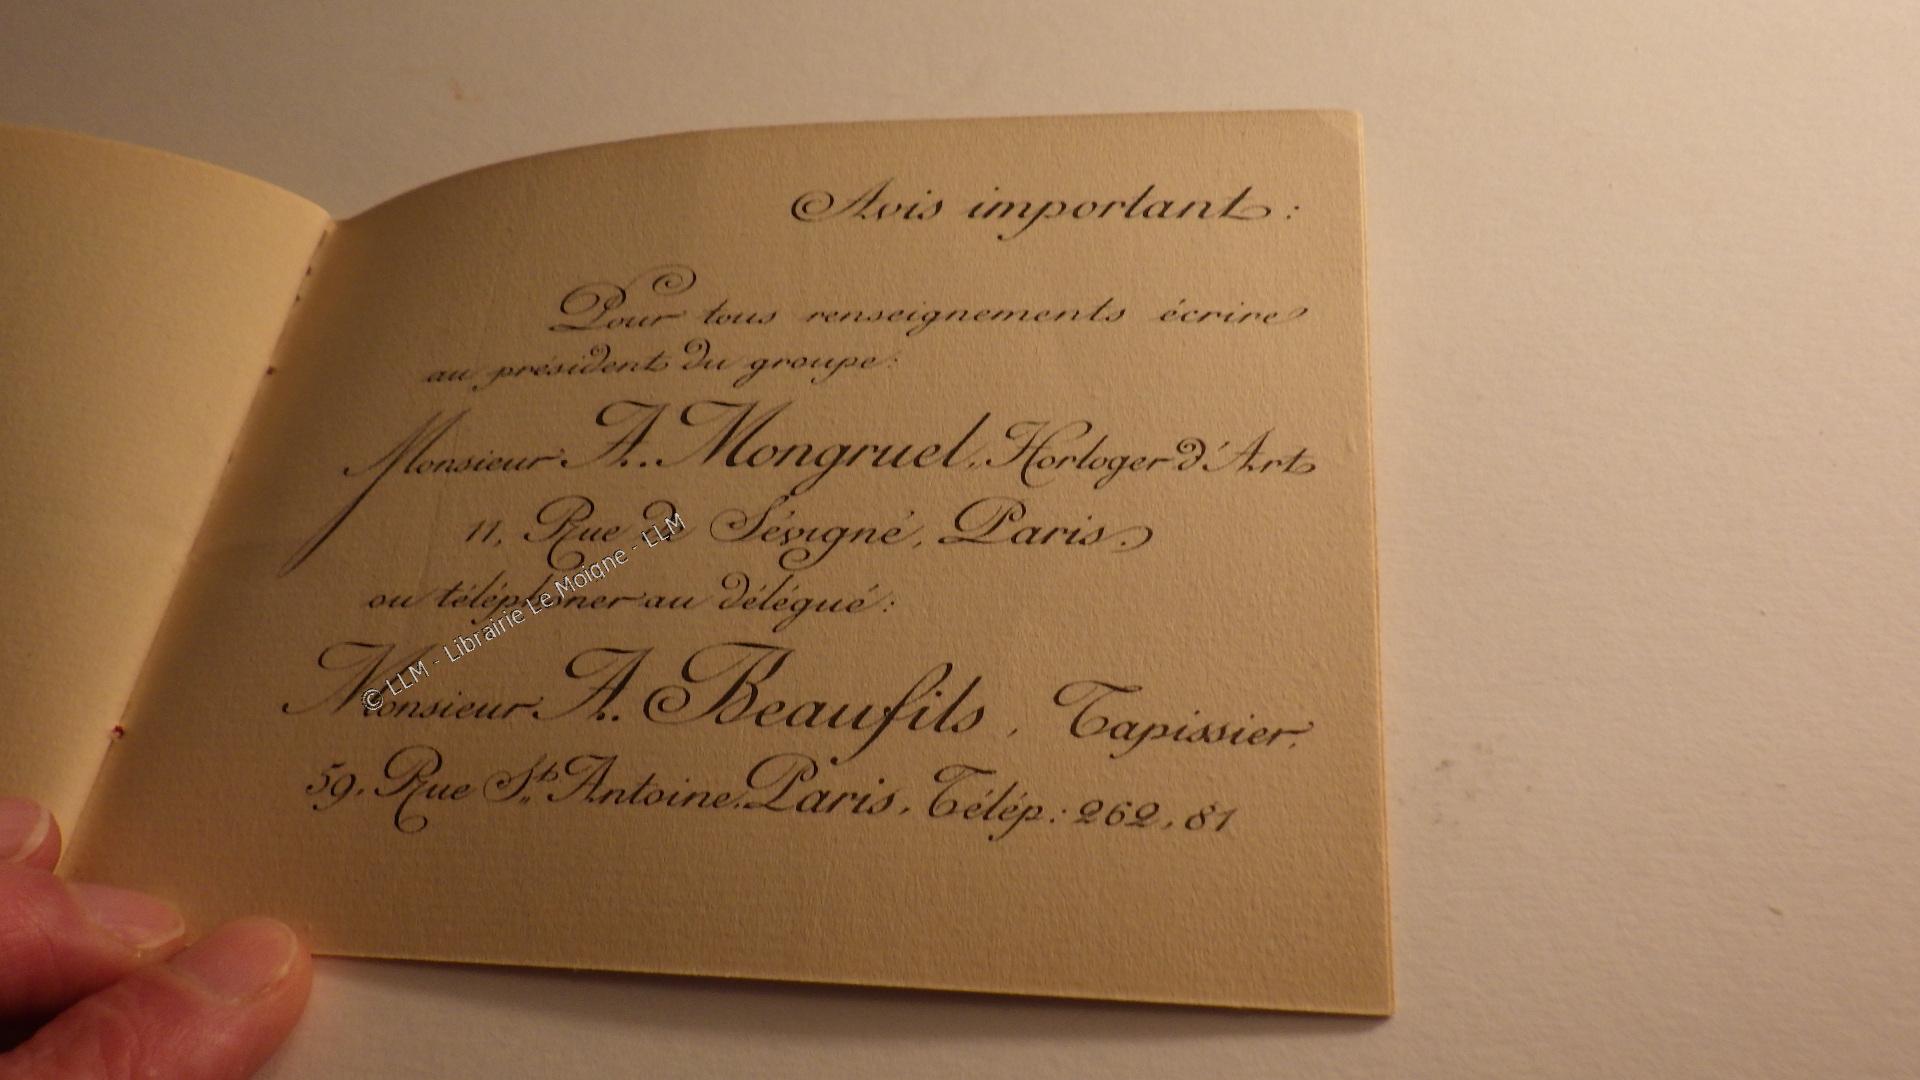 Avis important :
Pour tous renseignements écrire
au président du groupe :
Monsieur A. Mongruel, Horloger d'Art
11, Rue de Sévigné, Paris.
ou téléphoner au délégué :
Monsieur A. Beaufils, Tapissier,
59, Rue St Antoine, Paris, Télép : 262.81
© LLM - Librairie Le Moigne - LLM